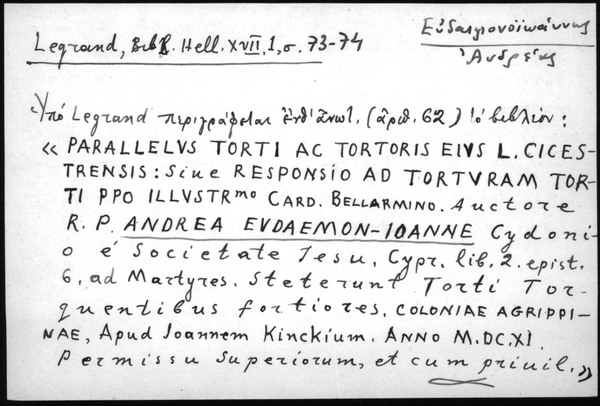 Legrand, Bibl. Hell. XVII, 1, σ. 73-74
Εὐδαιμονοϊωάννης
Ἀνδρέας
Ὑπὸ Legrand περιγράφεται ἐνθ' ἀνωτ. (ἀριθ. 62) τὸ βιβλίον:
« PARALLELVS TORTI AC TORTORIS EIVS L. CICES-
TRENSIS: Siue RESPONSIO AD TORTVRAM TOR-
TI PPO ILLVSTRmo CARD. BELLARMINO. Auctore
R. P. ANDREA EVDAEMON-IOANNE Cydoni-
o é Societate Iesu. Cypr. lib. 2. epist.
6. ad Martyres. Steterunt Torti Tor-
quentibus fortiores. COLONIAE AGRIPPI-
NAE, Apud Joannem Kinckium. ANNO M.DC.XI.
Permissu Superiorum, et cum priuil. »